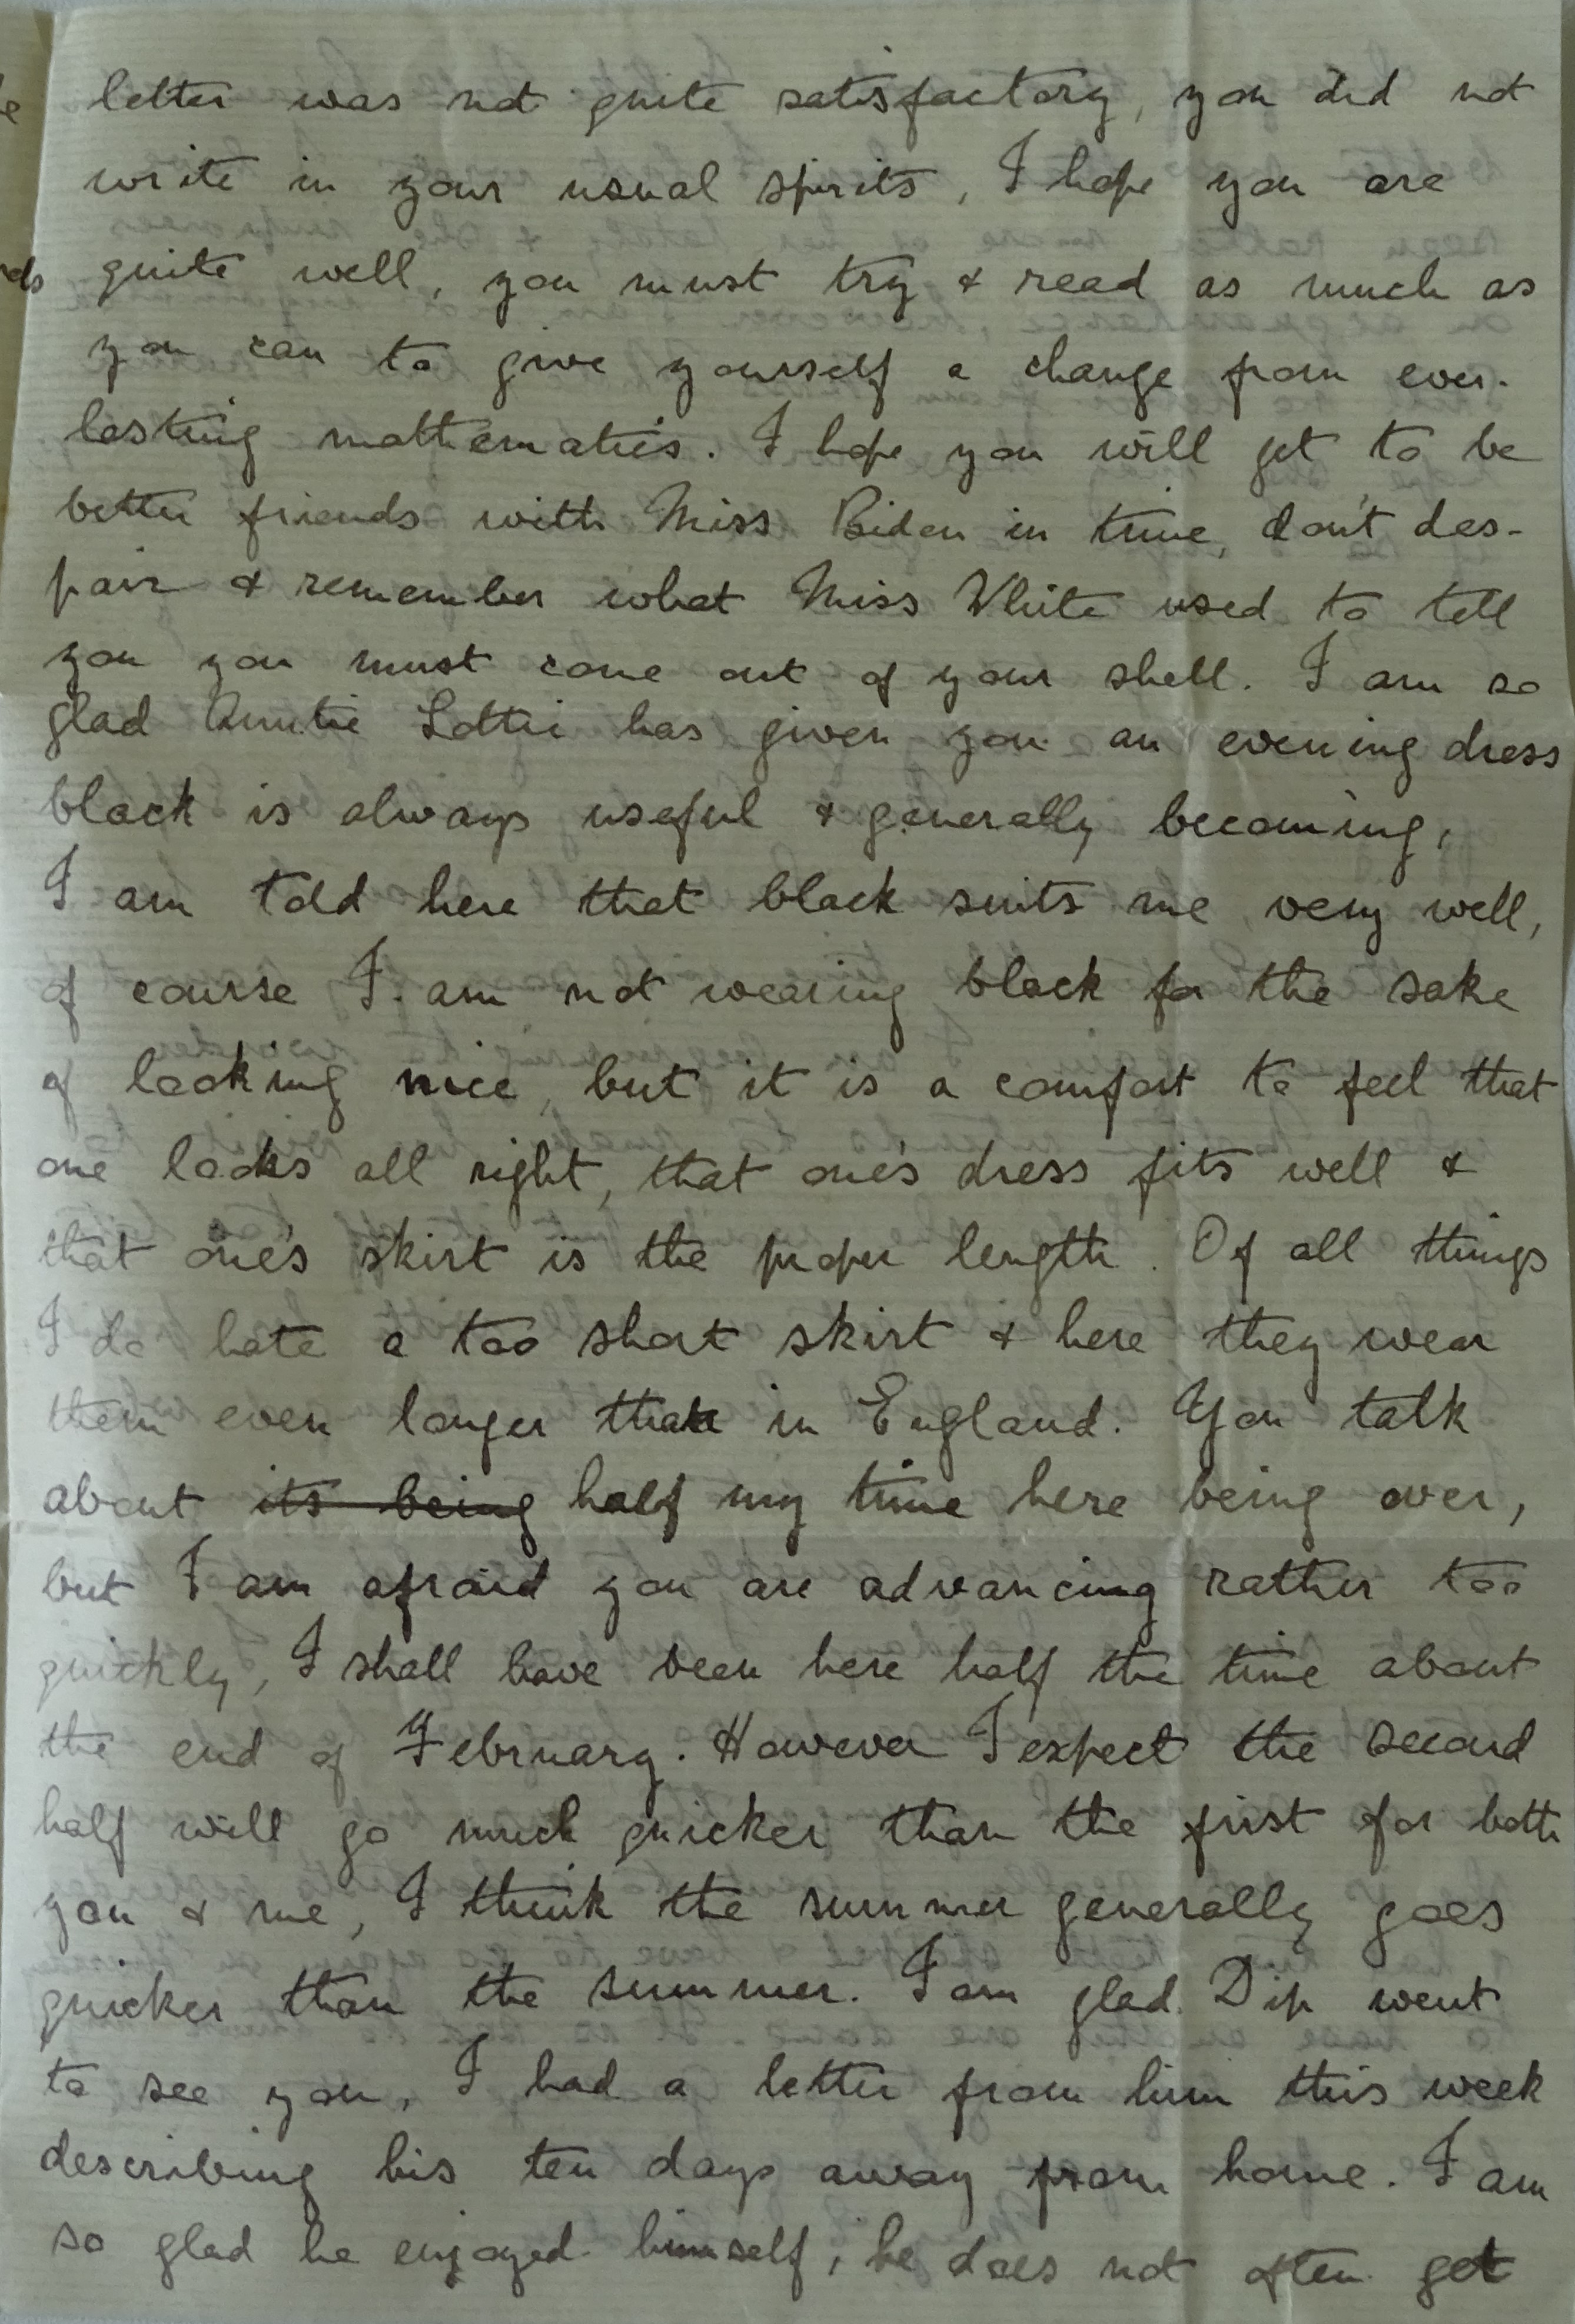 letter was not quite satisfactory, you did not
write in your usual spirits, I hope you are
quite well, you must try & read as much as
you can to give yourself a change from ever-
lasting mathematics. I hope you will get to be
better friends with Miss Biden in time, don't des-
pair & remember what Miss White used to tell
you you must come out of your shell. I am so
glad Auntie Lottie has given you an evening dress
black is always useful & generally becoming,
I am told here that black suits me very well,
of course I am not wearing black for the sake
of looking nice, but it is a comfort to feel that
one looks all right, that one's dress fits well &
that one's skirt is the proper length. Of all things
I do hate a too short skirt & here they wear
them even longer than in England. You talk
about its being half my time here being over,
but I am afraid you are advancing rather too
quickly, I shall have been here half the time about
the end of February. However I expect the second
half will go much quicker than the first for both
you & me, I think the summer generally goes
quicker than the summer. I am glad Dip went
to see you, I had a letter from him this week
describing his ten days away from home. I am
so glad he enjoyed himself, he does not often get